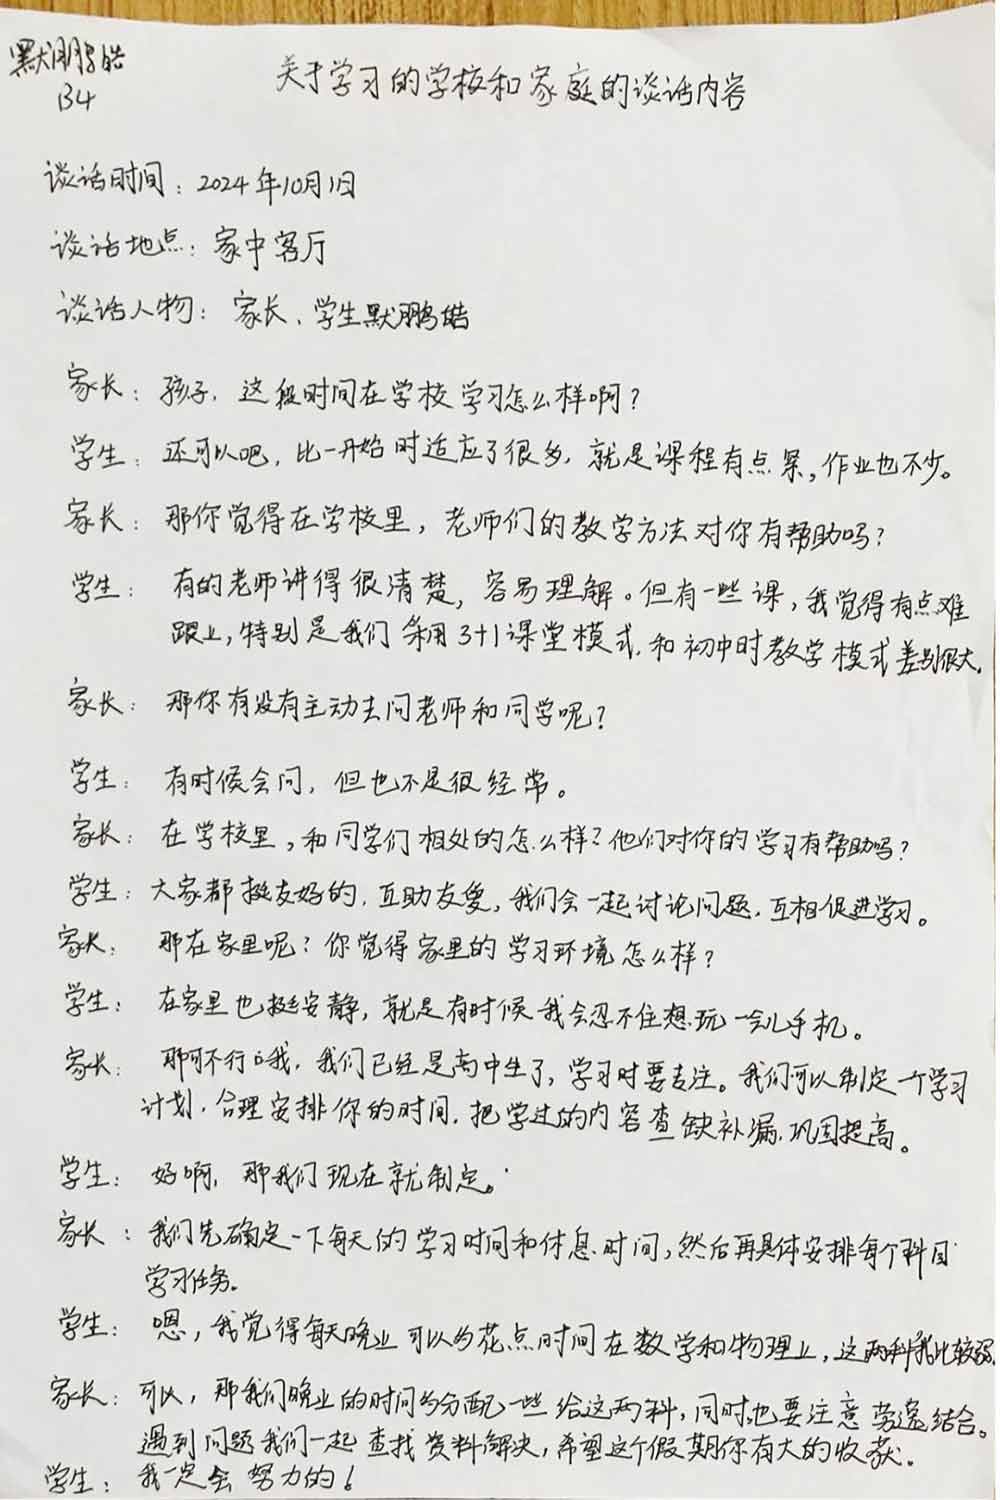 默鹏皓
B4
关于学习的学校和家庭的谈话内容
谈话时间：2024年10月1日
谈话地点：家中客厅
谈话人物：家长、学生默鹏皓
家长：孩子，这段时间在学校学习怎么样啊？
学生：还可以吧，比一开始时适应了很多，就是课程有点累，作业也不少。
家长：那你觉得在学校里，老师们的教学方法对你有帮助吗？
学生：有的老师讲得很清楚，容易理解。但有一些课，我觉得有点难
跟上，特别是我们采用3+1课堂模式，和初中时教学模式差别很大。
家长：那你有没有主动去问老师和同学呢？
学生：有时候会问，但也不是很经常。
家长：在学校里，和同学们相处的怎么样？他们对你的学习有帮助吗？
学生：大家都挺友好的，互助友爱，我们会一起讨论问题，互相促进学习。
家长：那在家里呢？你觉得家里的学习环境怎么样？
学生：在家里也挺安静，就是有时候我会忍不住想玩一会儿手机。
家长：那可不行哦，我们已经是高中生了，学习时要专注。我们可以制定一个学习
计划，合理安排你的时间，把学过的内容查缺补漏，巩固提高。
学生：好啊，那我们现在就制定。
家长：我们先确定一下每天的学习时间和休息时间，然后再具体安排每个科目
学习任务。
学生：嗯，我觉得每天晚上可以多花点时间在数学和物理上，这两科我比较弱。
家长：可以，那我们晚上的时间多分配一些给这两科，同时也要注意劳逸结合。
遇到问题我们一起查找资料解决，希望这个假期你有大的收获。
学生：我一定会努力的！